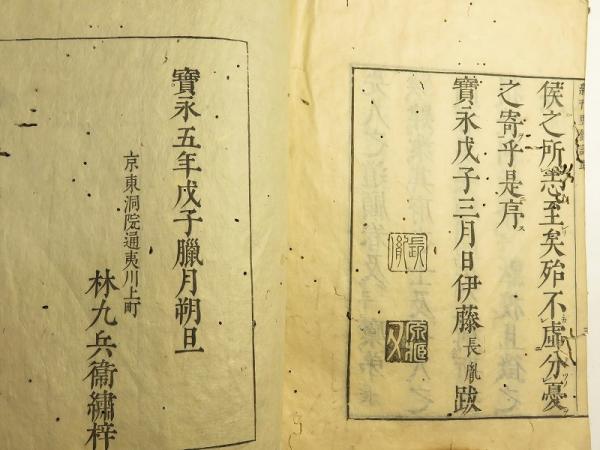 侯之所志至矣殆不虛分憂
之寄乎是序
寶永戊子三月日伊藤長胤跋
長胤
寶永五年戊子臘月朔旦
京東洞院通夷川上町
林九兵衞繡梓